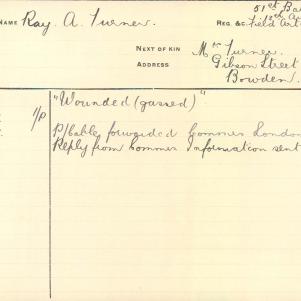 51st Ba
NAME Ray. A. Turner. REG. &c. Field Art
NEXT OF KIN Mr Turner.
ADDRESS Gibson Street
Bowden.
"Wounded (gassed)"
1/P P/Cable forwarded Commrs London
Reply from Commrs Information sent